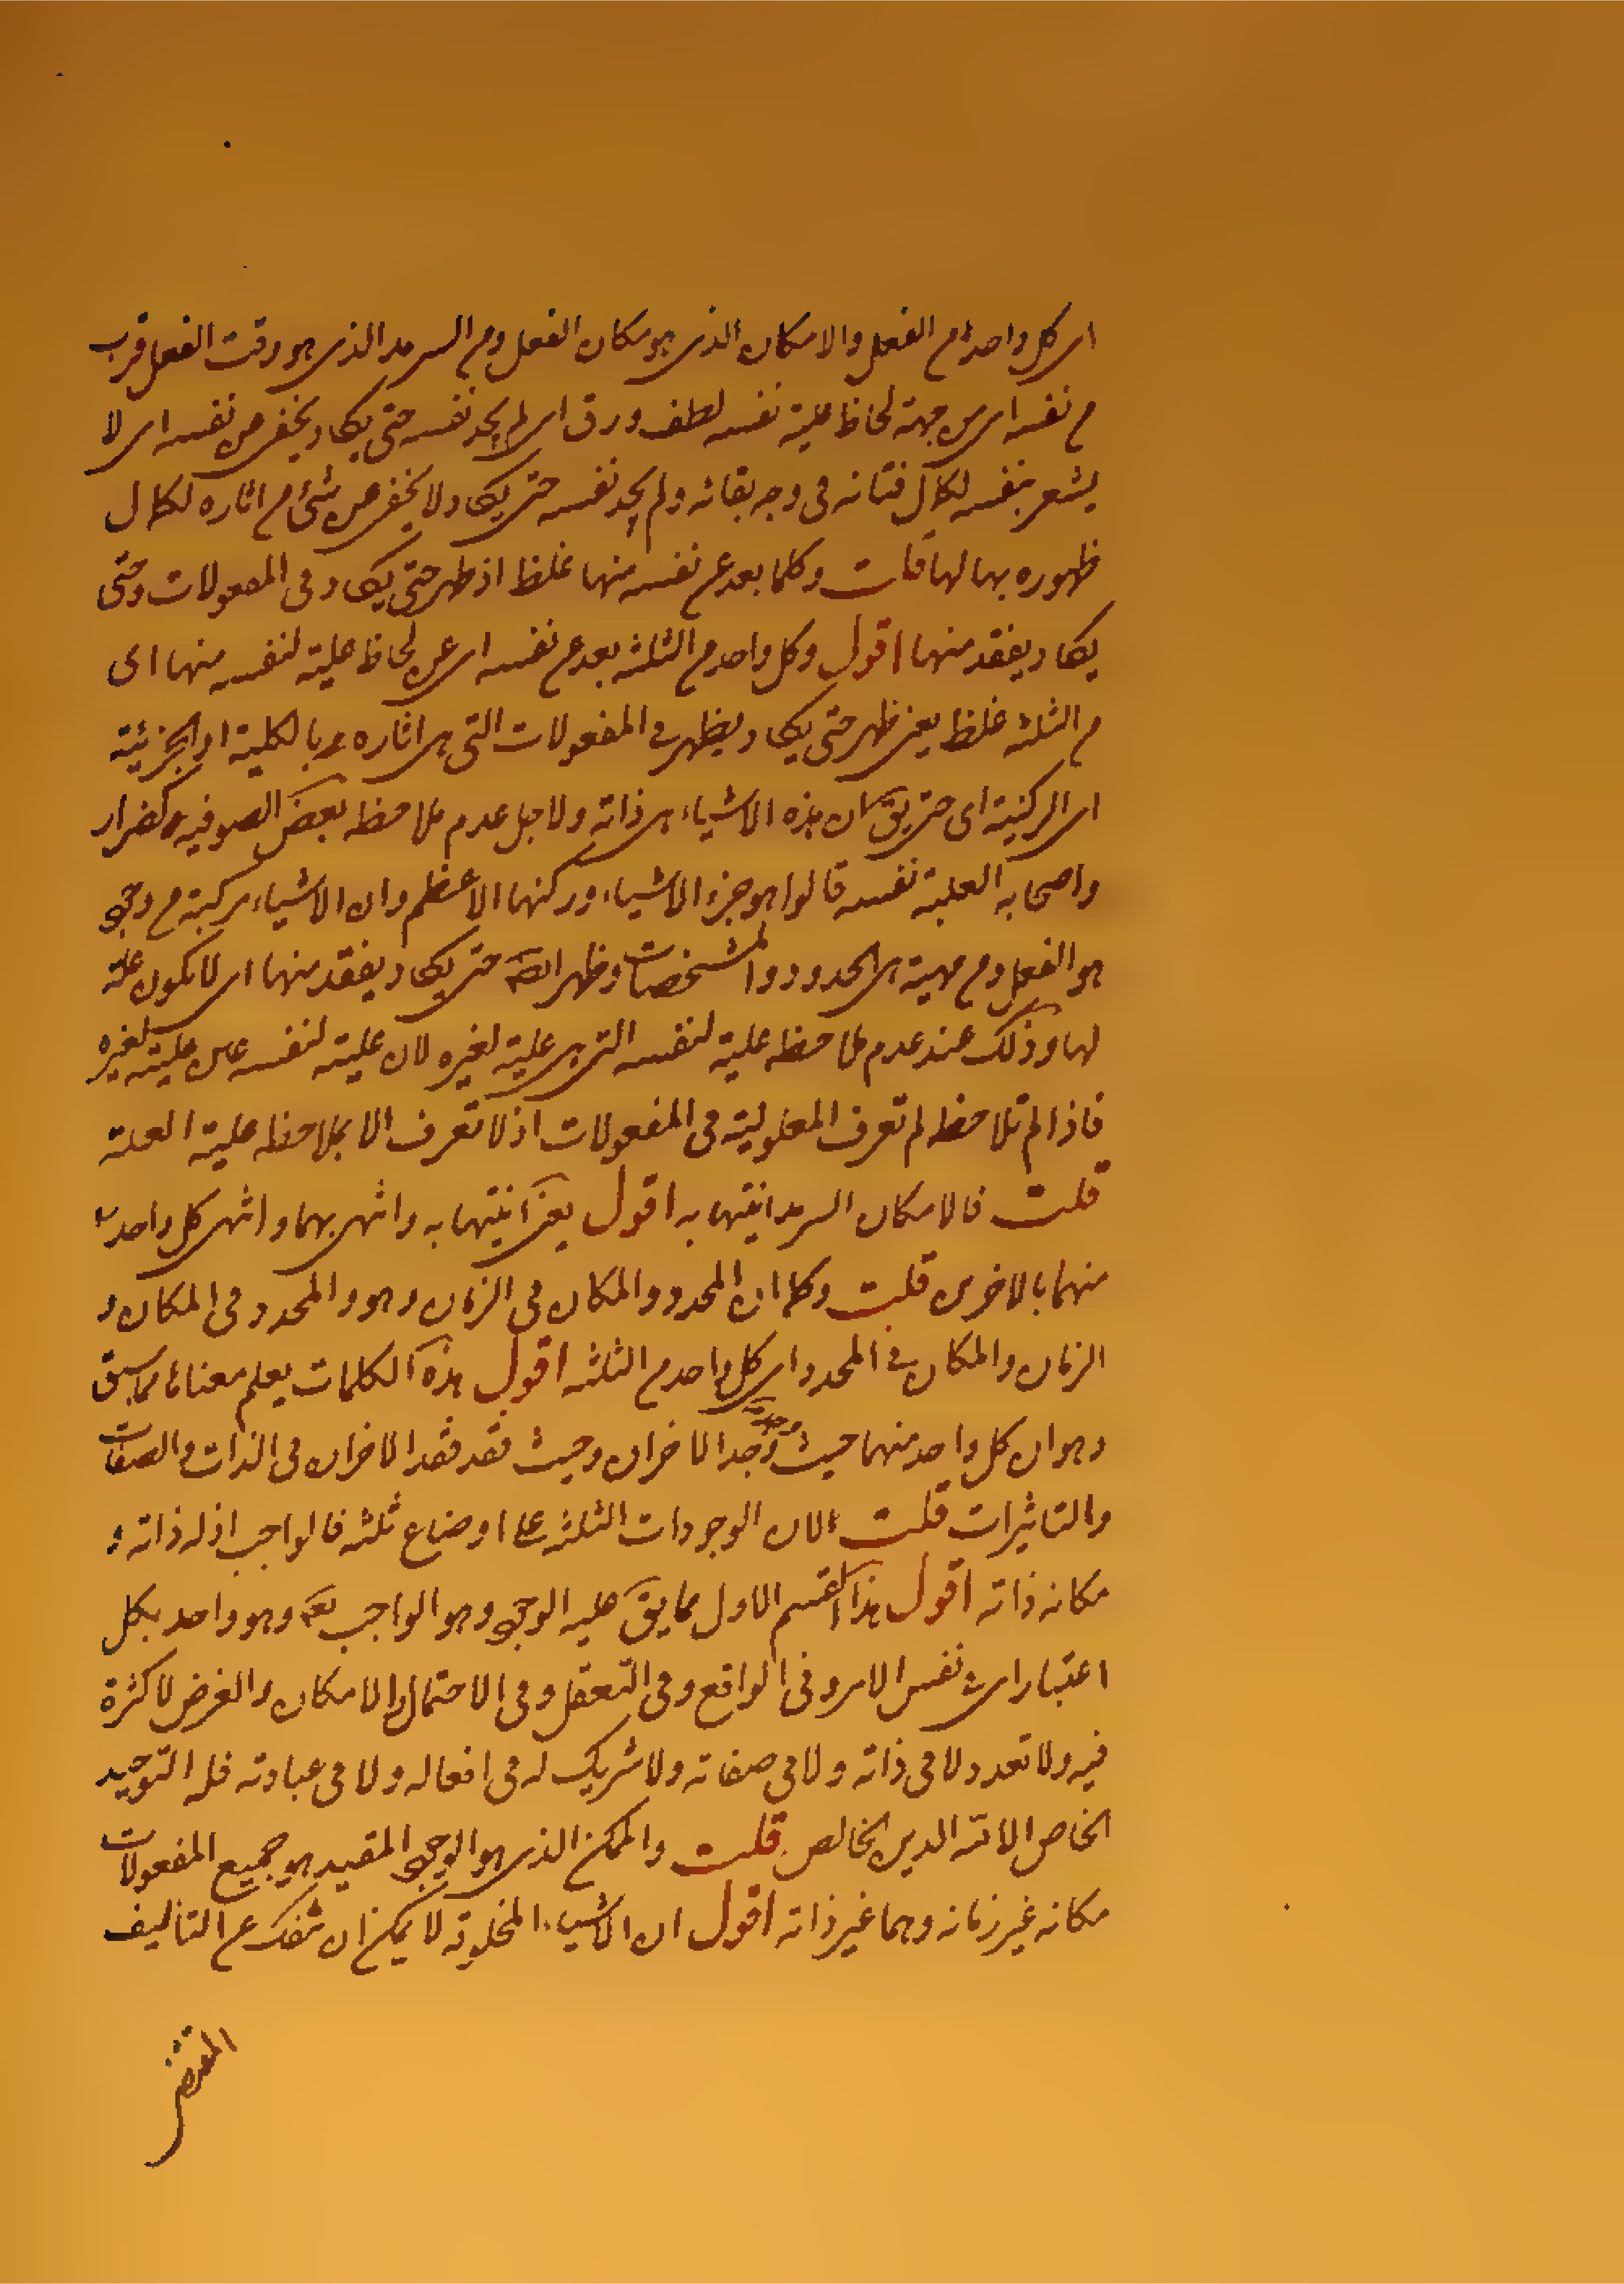 اى كل واحد من الفعل والامكان الذى هو مكان الفعل ومن السرمد الذى هو وقت الفعل قرب
من نفسه اى من جهة لحاظ علية نفسه لطف ورق اى لم يجد نفسه حتى يكاد يخفى عن نفسه اى لا
يشعر بنفسه لكمال فنائه فى وجه بقائه ولم يجد نفسه حتى يكاد لا يخفى عن شئ من اثاره لكمال
ظهوره بها لها قلت وكلما بعد عن نفسه منها غلظ اذ ظهر حتى يكاد فى المفعولات وحتى
يكاد يفقد منها اقول وكل واحد من الثلثة بعد عن نفسه اى عن لحاظ علية لنفسه منها اى
من الثلثة غلظ يعنى ظهر حتى يكاد يظهر فى المفعولات التى هى اثاره بالكلية او الجزئية
اى الركنية اى حتى يق ان هذه الاشياء هى ذاته ولاجل عدم ملاحظة بعض الصوفيه كضرار
واصحابه العلية نفسه قالوا هو جزء الاشياء وركنها الاعظم وان الاشياء مركبة من وجو
هو الفعل ومن مهية هى الحدود والمشخصات وظهر ايضا حتى يكاد يفقد منها اى لا يكون علة
لها وذلك عند عدم ملاحظة علية لنفسه التى هى علية لغيره لان علية لنفسه عين علية لغيره
فاذا لم تلاحظ لم تعرف المعلولية فى المفعولات اذ لا تعرف الا بملاحظة علية العلة
قلت فالامكان السرمد انتها به اقول يعنى انتها به وانتهى بهما وانتهى كل واحد
منهما بالاخرين قلت وكما ان المحدد والمكان فى الزمان وهو والمحدد فى المكان و
الزمان والمكان فى المحدد اى كل واحد من الثلثه اقول هذه الكلمات يعلم معناها مما سبق
وهو ان كل واحد منهما حيث وجد وجد الاخران وحيث فقد فقد الاخران فى الذات والصفات
والتاثيرات قلت الان الوجودات الثلثة على اوضاع ثلثه فالواجب اذله ذاته و
مكانه ذاته اقول هذا القسم الاول مما يق عليه الوجو وهو الواجب تعه وهو واحد بكل
اعتبار اى فى نفس الامر وفى الواقع وفى التعقل وفى الاحتمال والامكان والفرض لا كثرة
فيه ولا تعدد لا فى ذاته ولا فى صفاته ولا شريك له فى افعاله ولا فى عبادته فله التوحيد
الخاص الا لله الدين الخالص قلت والممكن الذى هو الوجو المقيد هو جميع المفعولات
مكانه غير زمانه وهما غير ذاته اقول ان الاشياء المخلوقة لا يمكن ان تنفك عن التأليف
المقتضى